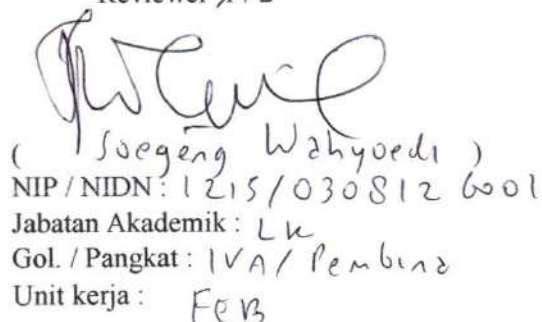 Reviewer
( Soegeng Wahyoedi )
NIP / NIDN : 1215/0308126001
Jabatan Akademik : LK
Gol. / Pangkat : IVA / Pembina
Unit kerja : FEB